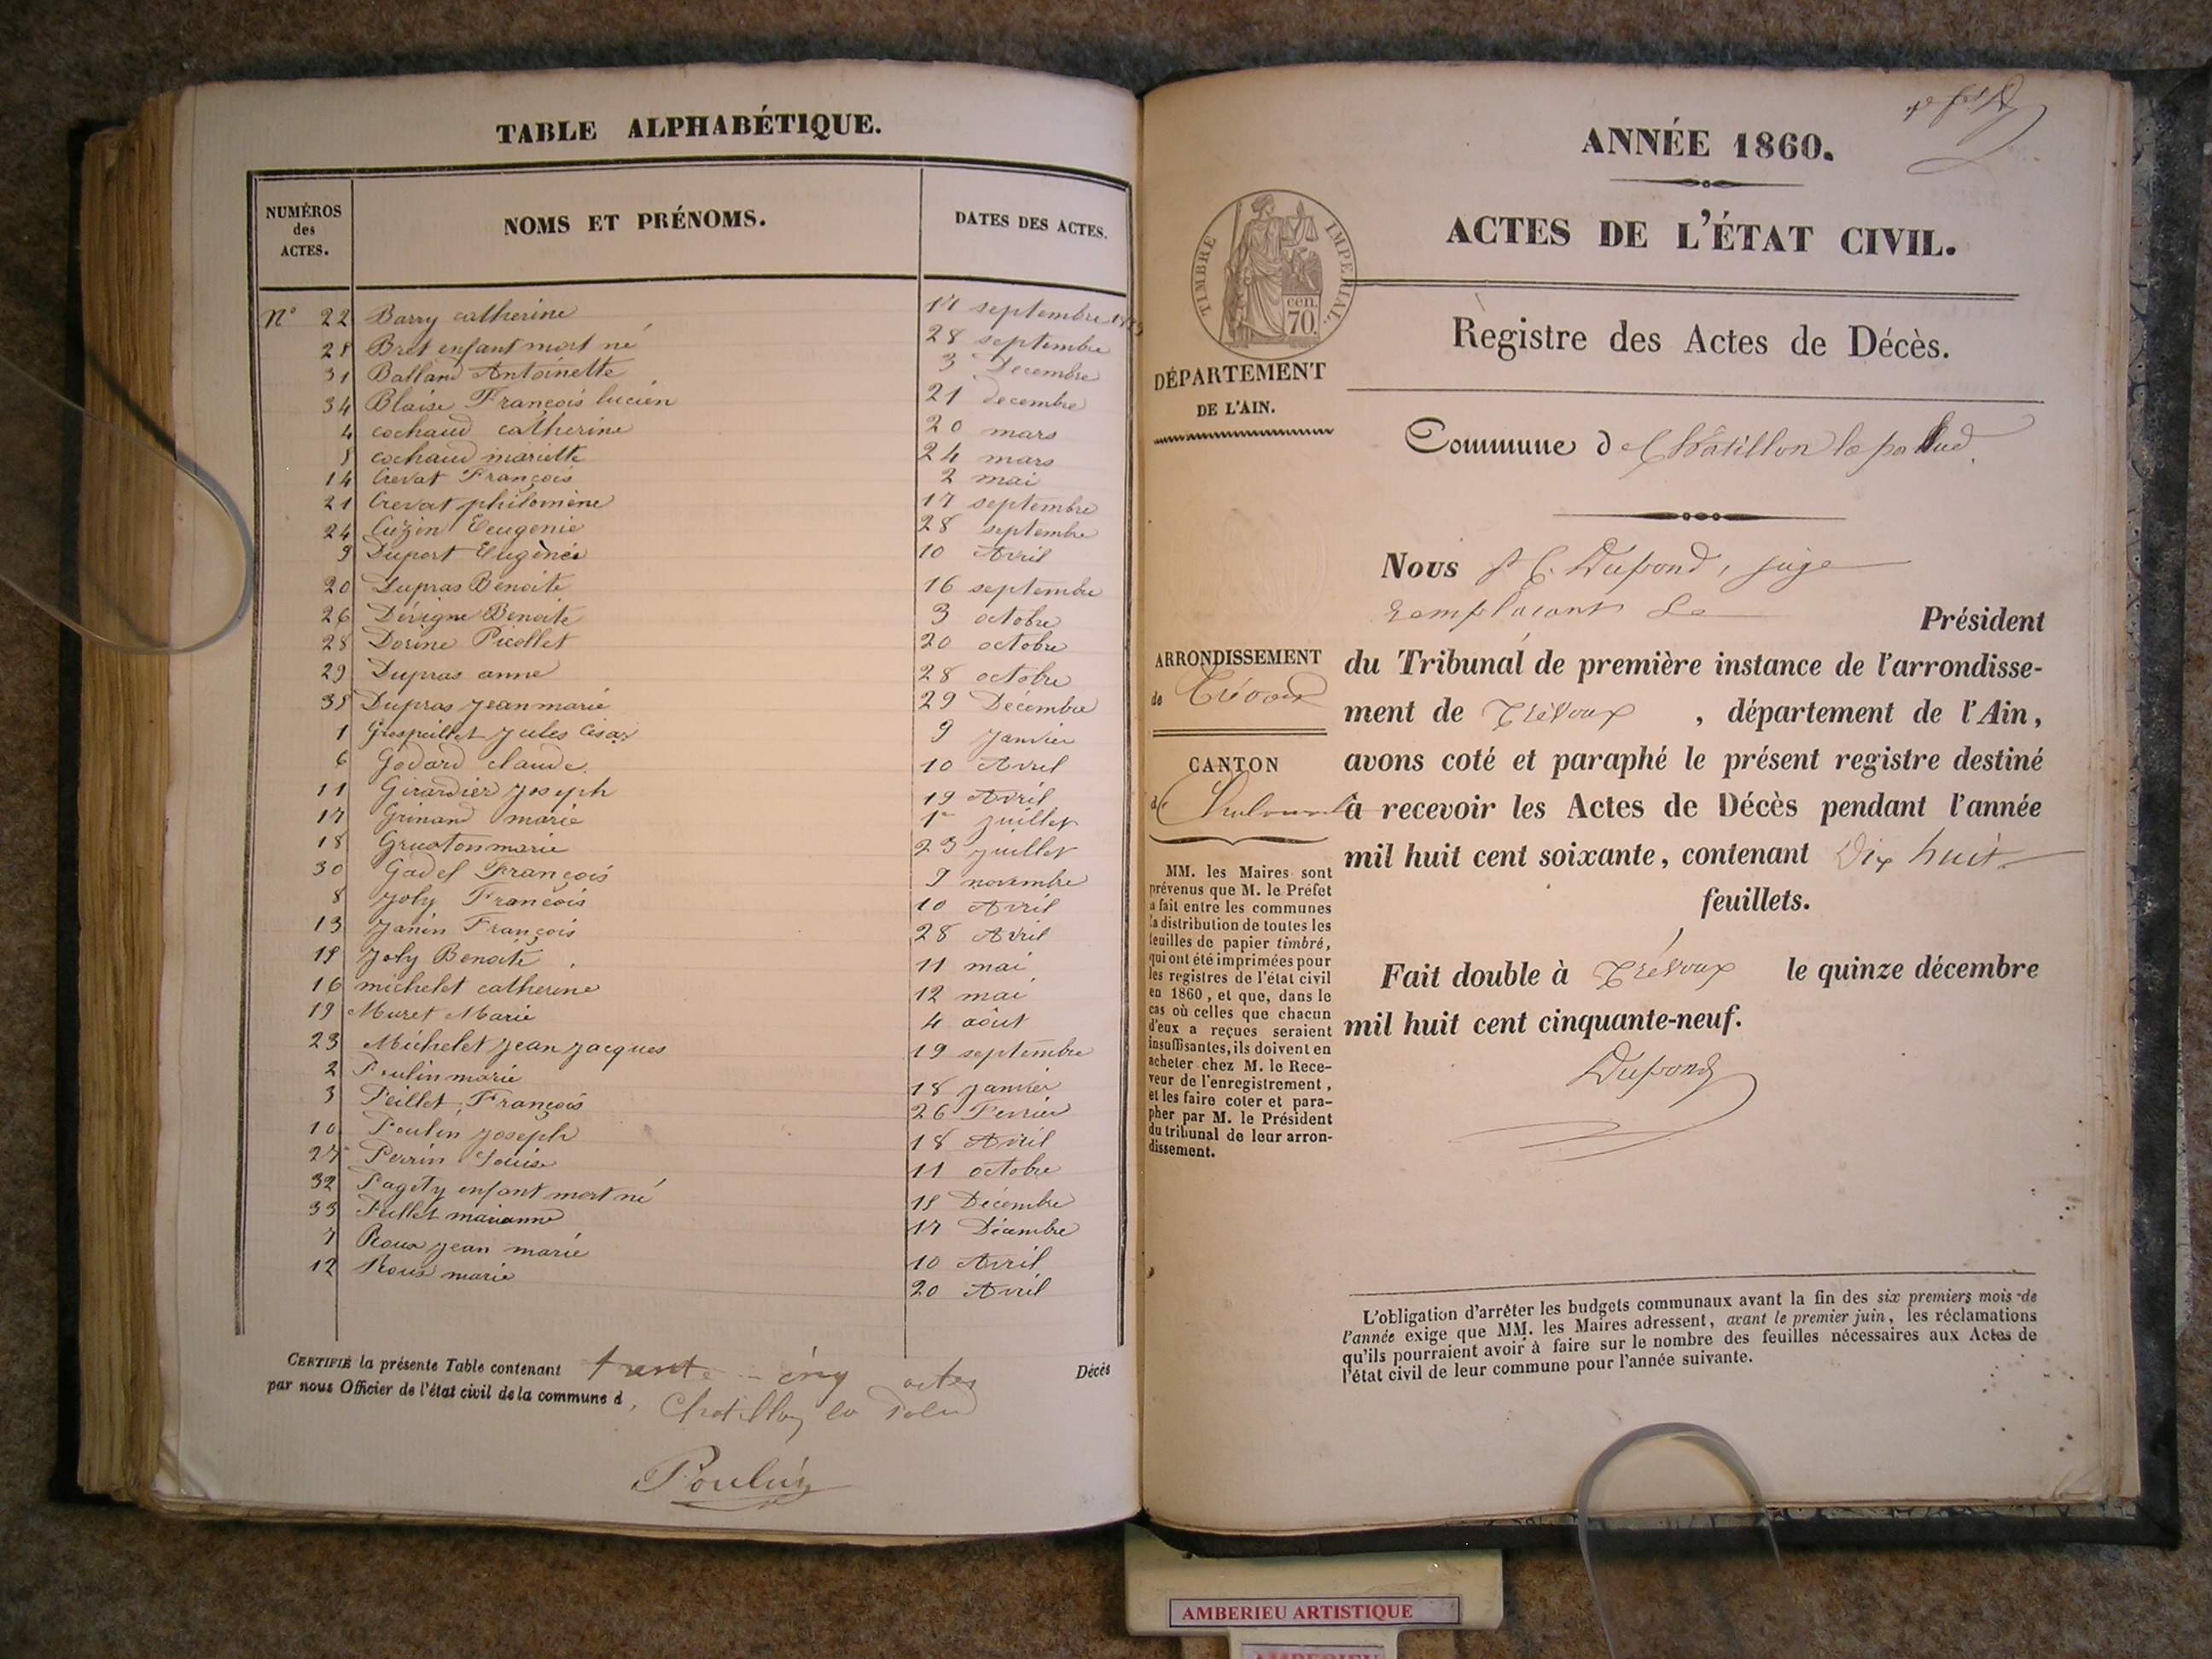 TABLE ALPHABÉTIQUE.
NUMÉROS des ACTES. NOMS ET PRÉNOMS. DATES DES ACTES.
N° 22 Barry catherine 17 septembre
25 Bret enfant mort né 28 septembre
31 Balland Antoinette 3 Decembre
34 Blaise François lucien 21 decembre
4 cochaud catherine 20 mars
5 cochaud mariette 24 mars
14 Crevat François 2 mai
21 Crevat philomène 17 septembre
24 Cuzin Eeugenie 28 septembre
9 Duport Eugénie 10 Avril
20 Dupras Benoite 16 septembre
26 Dévigne Benoite 3 octobre
28 Dorine Picollet 20 octobre
29 Dupras anne 28 octobre
35 Dupras jean marie 29 Décembre
1 Grospeillet jules César 9 janvier
6 Godard claude 10 Avril
11 Girardier joseph 19 Avril
17 Grinand marie 1er juillet
18 Gruaton marie 23 juillet
30 Gadel François 9 novembre
8 joly François 10 Avril
13 janin François 28 Avril
15 joly Benoite 11 mai
16 michelet catherine 12 mai
19 Muret Marie 4 août
23 Michelet jean jacques 19 septembre
2 Poulin marie 18 janvier
3 Peillet François 26 Fevrier
10 Poulin joseph 18 Avril
27 Perrin Louise 11 octobre
32 Pagety enfant mort né 15 Décembre
33 Peillet marianne 17 Décembre
7 Roux jean marie 10 Avril
12 Roux marie 20 Avril
CERTIFIÉ la présente Table contenant trente-cinq actes Décès
par nous Officier de l'état civil de la commune d Chatillon la Palud
Poulin
ANNÉE 1860.
ACTES DE L'ÉTAT CIVIL.
TIMBRE IMPERIAL.
cen.
70.
Registre des Actes de Décès.
DÉPARTEMENT
DE L'AIN.
Commune de Châtillon la palud
Nous Dupond, juge
remplacant le Président
ARRONDISSEMENT
de Trévoux
CANTON
de
du Tribunal de première instance de l'arrondisse-
ment de Trévoux, département de l'Ain,
avons coté et paraphé le présent registre destiné
à recevoir les Actes de Décès pendant l'année
mil huit cent soixante, contenant Dix huit
feuillets.
Fait double à Trévoux le quinze décembre
mil huit cent cinquante-neuf.
Dupond
MM. les Maires sont
prévenus que M. le Préfet
a fait entre les communes
la distribution de toutes les
feuilles de papier timbré,
qui ont été imprimées pour
les registres de l'état civil
en 1860, et que, dans le
cas où celles que chacun
d'eux a reçues seraient
insuffisantes, ils doivent en
acheter chez M. le Rece-
veur de l'enregistrement,
et les faire coter et para-
pher par M. le Président
du tribunal de leur arron-
dissement.
L'obligation d'arrêter les budgets communaux avant la fin des six premiers mois de
l'année exige que MM. les Maires adressent, avant le premier juin, les réclamations
qu'ils pourraient avoir à faire sur le nombre des feuilles nécessaires aux Actes de
l'état civil de leur commune pour l'année suivante.
AMBERIEU ARTISTIQUE
AMBERIEU